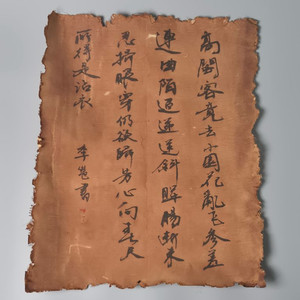 高閣客竟去小園花亂飛參差
連曲陌迢遞送斜暉腸斷未
忍掃眼穿仍欲歸芳心向春尽
所得是沾衣
李 書